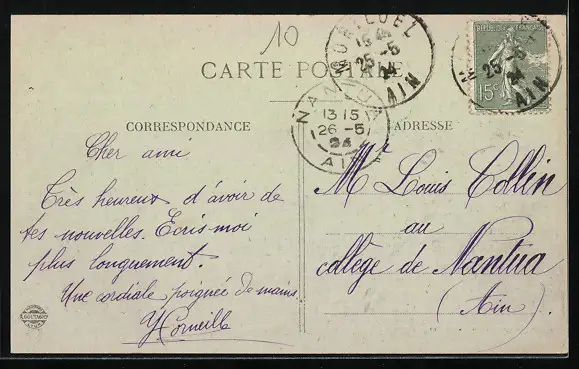 10
CARTE POSTALE
MONTLUEL
15 45
25-5
24
AIN
RÉPUBLIQUE FRANÇAISE
15c
25-5
24
AIN
NANTUA
13 15
26-5
24
AIN
CORRESPONDANCE
Cher ami
Très heureux d'avoir de
tes nouvelles. Ecris-moi
plus longuement.
Une cordiale poignée de mains.
YCorneille
ADRESSE
Mr Louis Collin
au
collège de Nantua
(Ain)